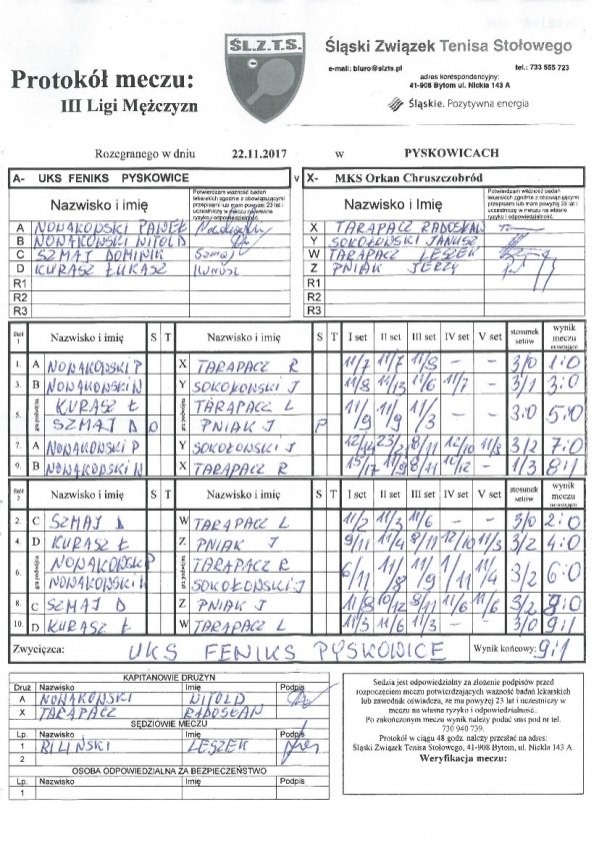 ŚL.Z.T.S.
Śląski Związek Tenisa Stołowego
e-mail: biuro@slzts.pl tel.: 733 555 723
adres korespondencyjny:
41-908 Bytom ul. Nickla 143 A
Śląskie. Pozytywna energia
Protokół meczu:
III Ligi Mężczyzn
Rozegranego w dniu 22.11.2017 w PYSKOWICACH
A- UKS FENIKS PYSKOWICE v X- MKS Orkan Chruszczobród
Nazwisko i imię Nazwisko i imię
A NOWAKOWSKI PAWEŁ X TARAPACZ RADOSŁAW
B NOWAKOWSKI WITOLD Y SOKOŁOWSKI JANUSZ
C SZMAJ DOMINIK Szmaj W TARAPACZ LESZEK
D KURASZ ŁUKASZ Z PNIAK JERZY
R1 R1
R2 R2
R3 R3
Nazwisko i imię S T Nazwisko i imię S T I set II set III set IV set V set stosunek setów wynik meczu
1. A NOWAKOWSKI P X TARAPACZ R 11/7 11/7 - - 3/0 1:0
3. B NOWAKOWSKI W Y SOKOŁOWSKI J 11/8 11/13 11/6 11/7 - 3/1 3:0
5. gra podwójna KURASZ Ł TARAPACZ L 11/9 11/9 11/3 - - 3:0 5:0
SZMAJ D PNIAK J P
7. A NOWAKOWSKI P Y SOKOŁOWSKI J 8/11 12/10 11/8 3/2 7:0
9. B NOWAKOWSKI W X TARAPACZ R 15/17 11/9 8/11 10/12 - 1/3 8:1
Nazwisko i imię S T Nazwisko i imię S T I set II set III set IV set V set stosunek setów wynik meczu
2. C SZMAJ D W TARAPACZ L 11/2 11/3 11/6 - - 3/0 2:0
4. D KURASZ Ł Z PNIAK J 9/11 11/4 12/10 11/3 3/2 4:0
6. gra podwójna NOWAKOWSKI P TARAPACZ R 6/11 11/8 11/9 1/11 11/4 3/2 6:0
NOWAKOWSKI W SOKOŁOWSKI J
8. C SZMAJ D Z PNIAK J 11/8 10/12 8/11 11/6 11/6 3/2 8:0
10. D KURASZ Ł W TARAPACZ L 11/3 11/6 11/3 - - 3/0 9:1
Zwycięzca: UKS FENIKS PYSKOWICE Wynik końcowy: 9:1
KAPITANOWIE DRUŻYN
Druż Nazwisko Imię Podpis
A NOWAKOWSKI WITOLD
X TARAPACZ RADOSŁAW
SĘDZIOWIE MECZU
Lp. Nazwisko Imię Podpis
1 BILIŃSKI LESZEK
2
OSOBA ODPOWIEDZIALNA ZA BEZPIECZEŃSTWO
Lp. Nazwisko Imię Podpis
1
Sędzia jest odpowiedzialny za złożenie podpisów przed
rozpoczęciem meczu potwierdzających ważność badań lekarskich
lub zawodnik oświadcza, że ma powyżej 23 lat i uczestniczy w
meczu na własne ryzyko i odpowiedzialność.
Po zakończonym meczu wynik należy podać sms pod nr tel.
730 940 739.
Protokół w ciągu 48 godz. należy przesłać na adres:
Śląski Związek Tenisa Stołowego, 41-908 Bytom, ul. Nickla 143 A.
Weryfikacja meczu: